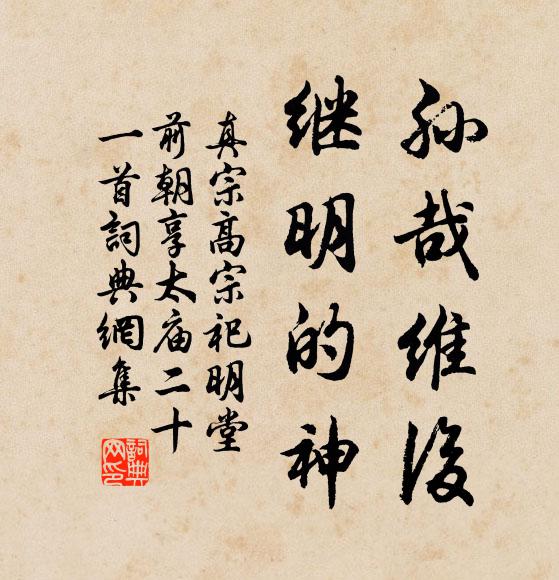 孙哉维后
继明的神
真宗高宗祀明堂
前朝享太庙二十
一首詞典網集
詞典
网印